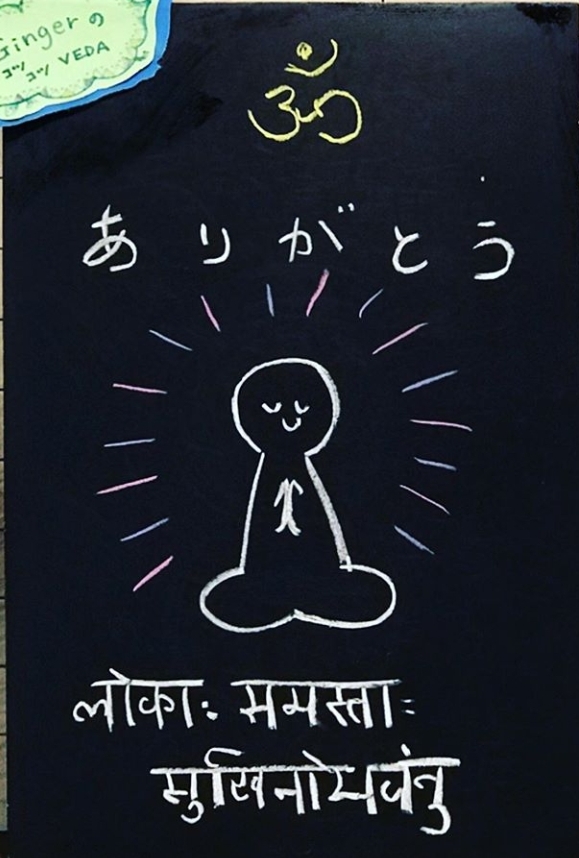 Gingerの
コツコツ VEDA
ॐ
ありがとう
लोकाः समस्ताः
सुखिनोभवंतु